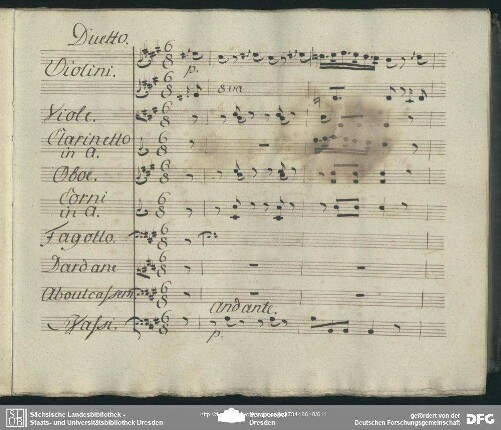 Duetto.
Violini.
p.
8va
Viole.
Clarinetto
in A.
Oboe.
Corni
in A.
Fagotto.
Dardane
Aboulcassem.
Andante.
Bassi.
p.
Sächsische Landesbibliothek -
Staats- und Universitätsbibliothek Dresden
Dresden
gefördert von der
Deutschen Forschungsgemeinschaft
DFG